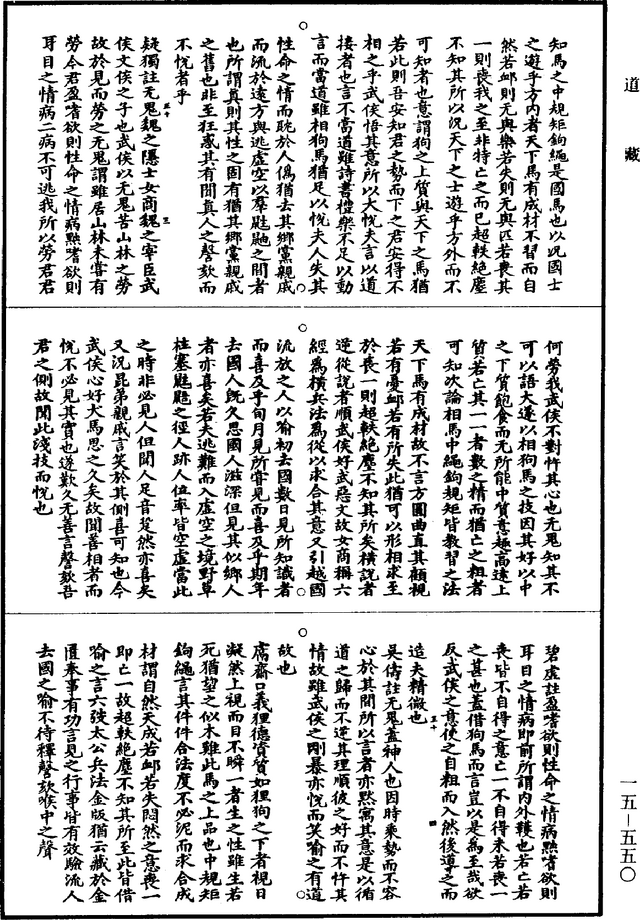 道藏
知馬之中規矩鉤繩是國馬也以況國士
之遊乎方內者天下馬有成材不習而自
然若卹則无與樂若失則无與匹若喪其
一則喪我之至非特亡之而已超軼絕塵
不知其所以況天下之士遊乎方外而不
可知者也意謂狗之上質與天下之馬猶
若此則吾安知君之勢而下之君安得不
相之乎武侯悟其意所以大悅夫言以道
接者也言不當道雖詩書禮樂不足以動
言而當道雖相狗馬猶足以悅夫人失其
性命之情而眈於人偽猶去其鄉黨親戚
而流於遠方與逃虛空以羣鼪鼬之間者
也所謂真則其性之固有猶其鄉黨親戚
之舊也非至狂惑其有聞真人之謦欬而
不悅者乎
疑獨註无鬼魏之隱士女商魏之宰臣武
侯文侯之子也武侯以无鬼苦山林之勞
故於見而勞之无鬼謂雖居山林未嘗有
勞今君盈嗜欲則性命之情病黜嗜欲則
耳目之情病二病不可逃我所以勞君君
何勞我武侯不對忤其心也无鬼知其不
可以語大遂以相狗馬之技因其好以中
之下質飽食而无所能中質意趣高遠上
質若亡其一一者數之精而猶亡之粗者
可知次論相馬中繩鉤規矩皆教習之法
天下馬有成材故不言方圓曲直其顧視
若有憂卹若有所失此猶可以形相求至
於喪一則超軼絕塵不知其所矣橫說者
逆從說者順武侯好武惡文故女商稱六
經為橫兵法為從以求合其意又引越國
流放之人以喻初去國數日見所知識者
而喜及乎旬月見所嘗見而喜及乎期年
去國人既久思國人滋深但見其似鄉人
者亦喜矣若夫逃難而入虛空之境野草
柱塞鼪鼬之徑人跡人位率皆空虛當此
之時非必見人但聞人足音跫然亦喜矣
又況昆弟親戚言笑於其側喜可知也今
武侯心好犬馬思之久矣故聞善相者而
悅不必見其實也遂歎久无善言謦欬吾
君之側故聞此淺技而悅也
碧虛註盈嗜欲則性命之情病黜嗜欲則
耳目之情病即前所謂內外韄也若亡若
喪皆不自得之意亡一不自得未若喪一
之甚也蓋借狗馬而言豈以是為至哉欲
反武侯之意使之自粗而入然後導之而
造夫精微也
吳儔註无鬼蓋神人也因時乘勢而不容
心於其間所以言者亦默寓其意是以循
道之歸而不逆其理順彼之好而不忤其
情故雖武侯之剛暴亦悅而笑喻之有道
故也
鬳齋口義狸德資質如狸狗之下者視日
凝然上視而目不瞬一者生之性雖生若
死猶望之似木雞此馬之上品也中規矩
鉤繩言其件件合法度不必泥而求合成
材謂自然天成若卹若失悶然之意喪一
即亡一故超軼絕塵不知其所至此皆借
喻之言六弢太公兵法金版猶云藏於金
匱奉事有功言見之行事皆有效驗流人
去國之喻不待釋謦欬喉中之聲
一五-五五〇